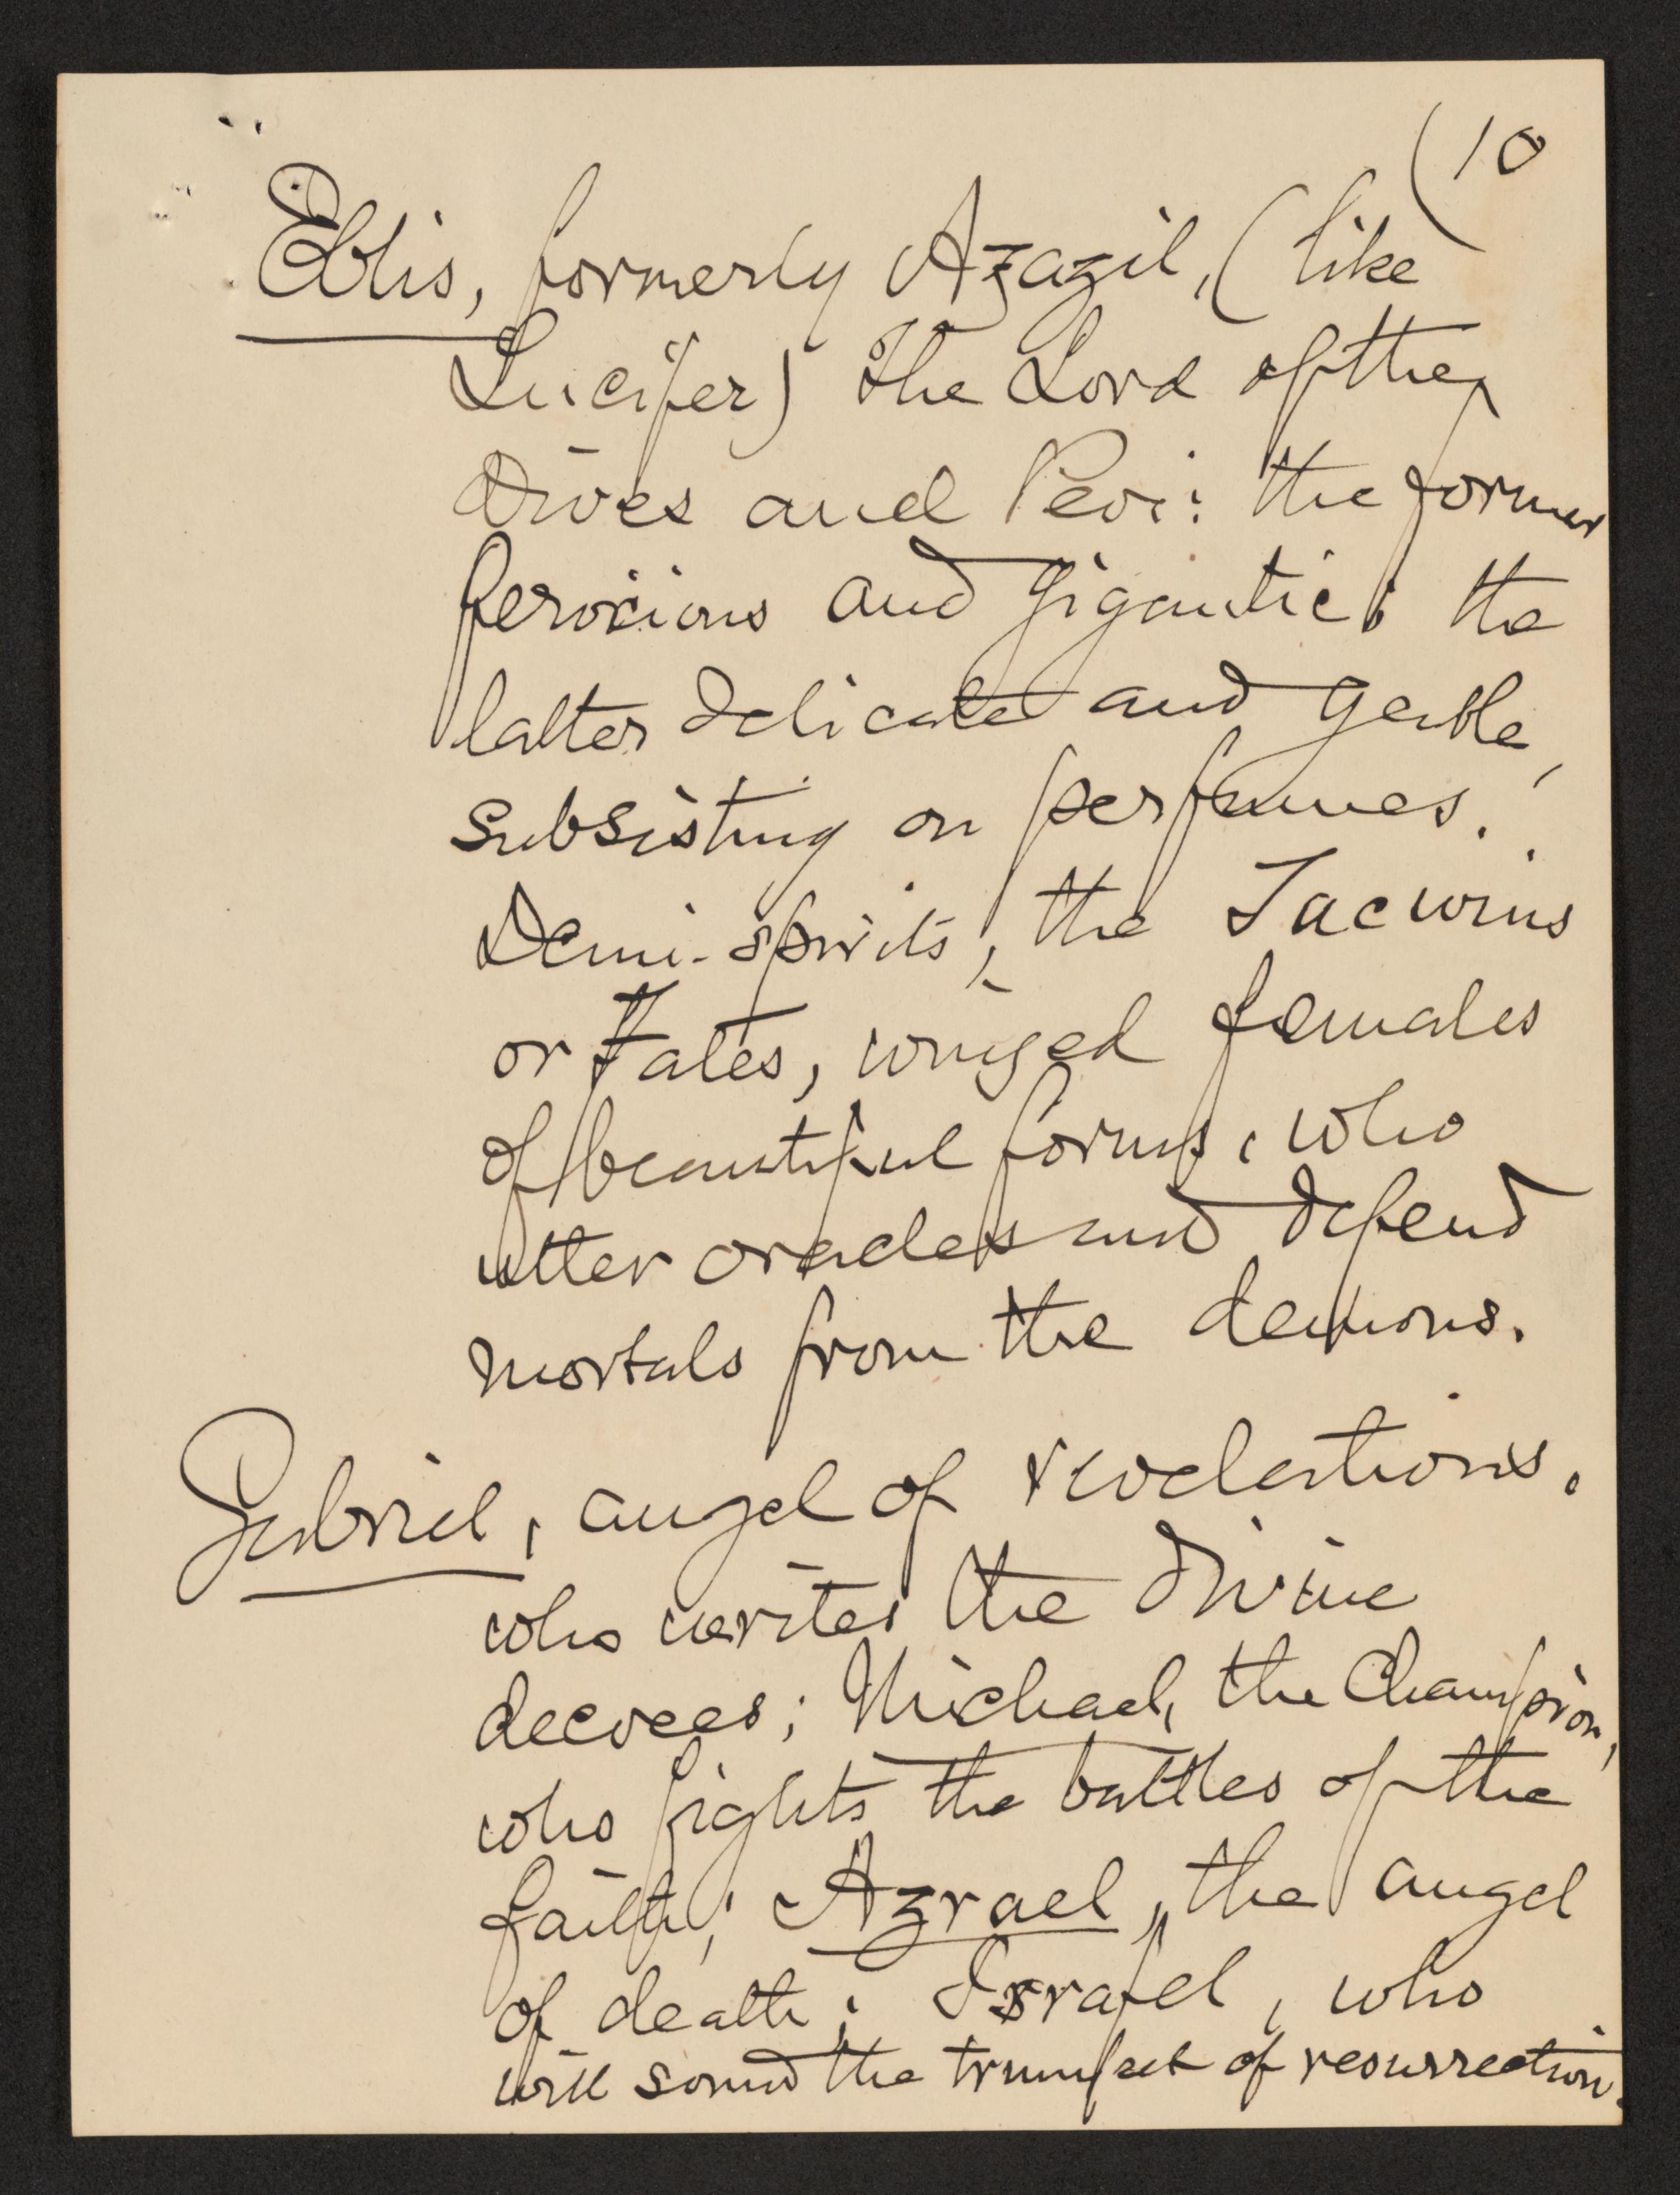 (10
Eblis, formerly Azazil, (like
Lucifer) the Lord of the
Dives and Peri: the former
ferocious and gigantic; the
latter delicate and gentle,
subsisting on perfumes.
Demi-spirits, the Tacwins
or Fates, winged females
of beautiful forms, who
utter oracles and defend
mortals from the demons.
Gabriel, angel of revelations,
who writes the divine
decrees; Michael, the Champion,
who fights the battles of the
faith; Azrael, the angel
of death; Israfel, who
will sound the trumpet of resurrection.